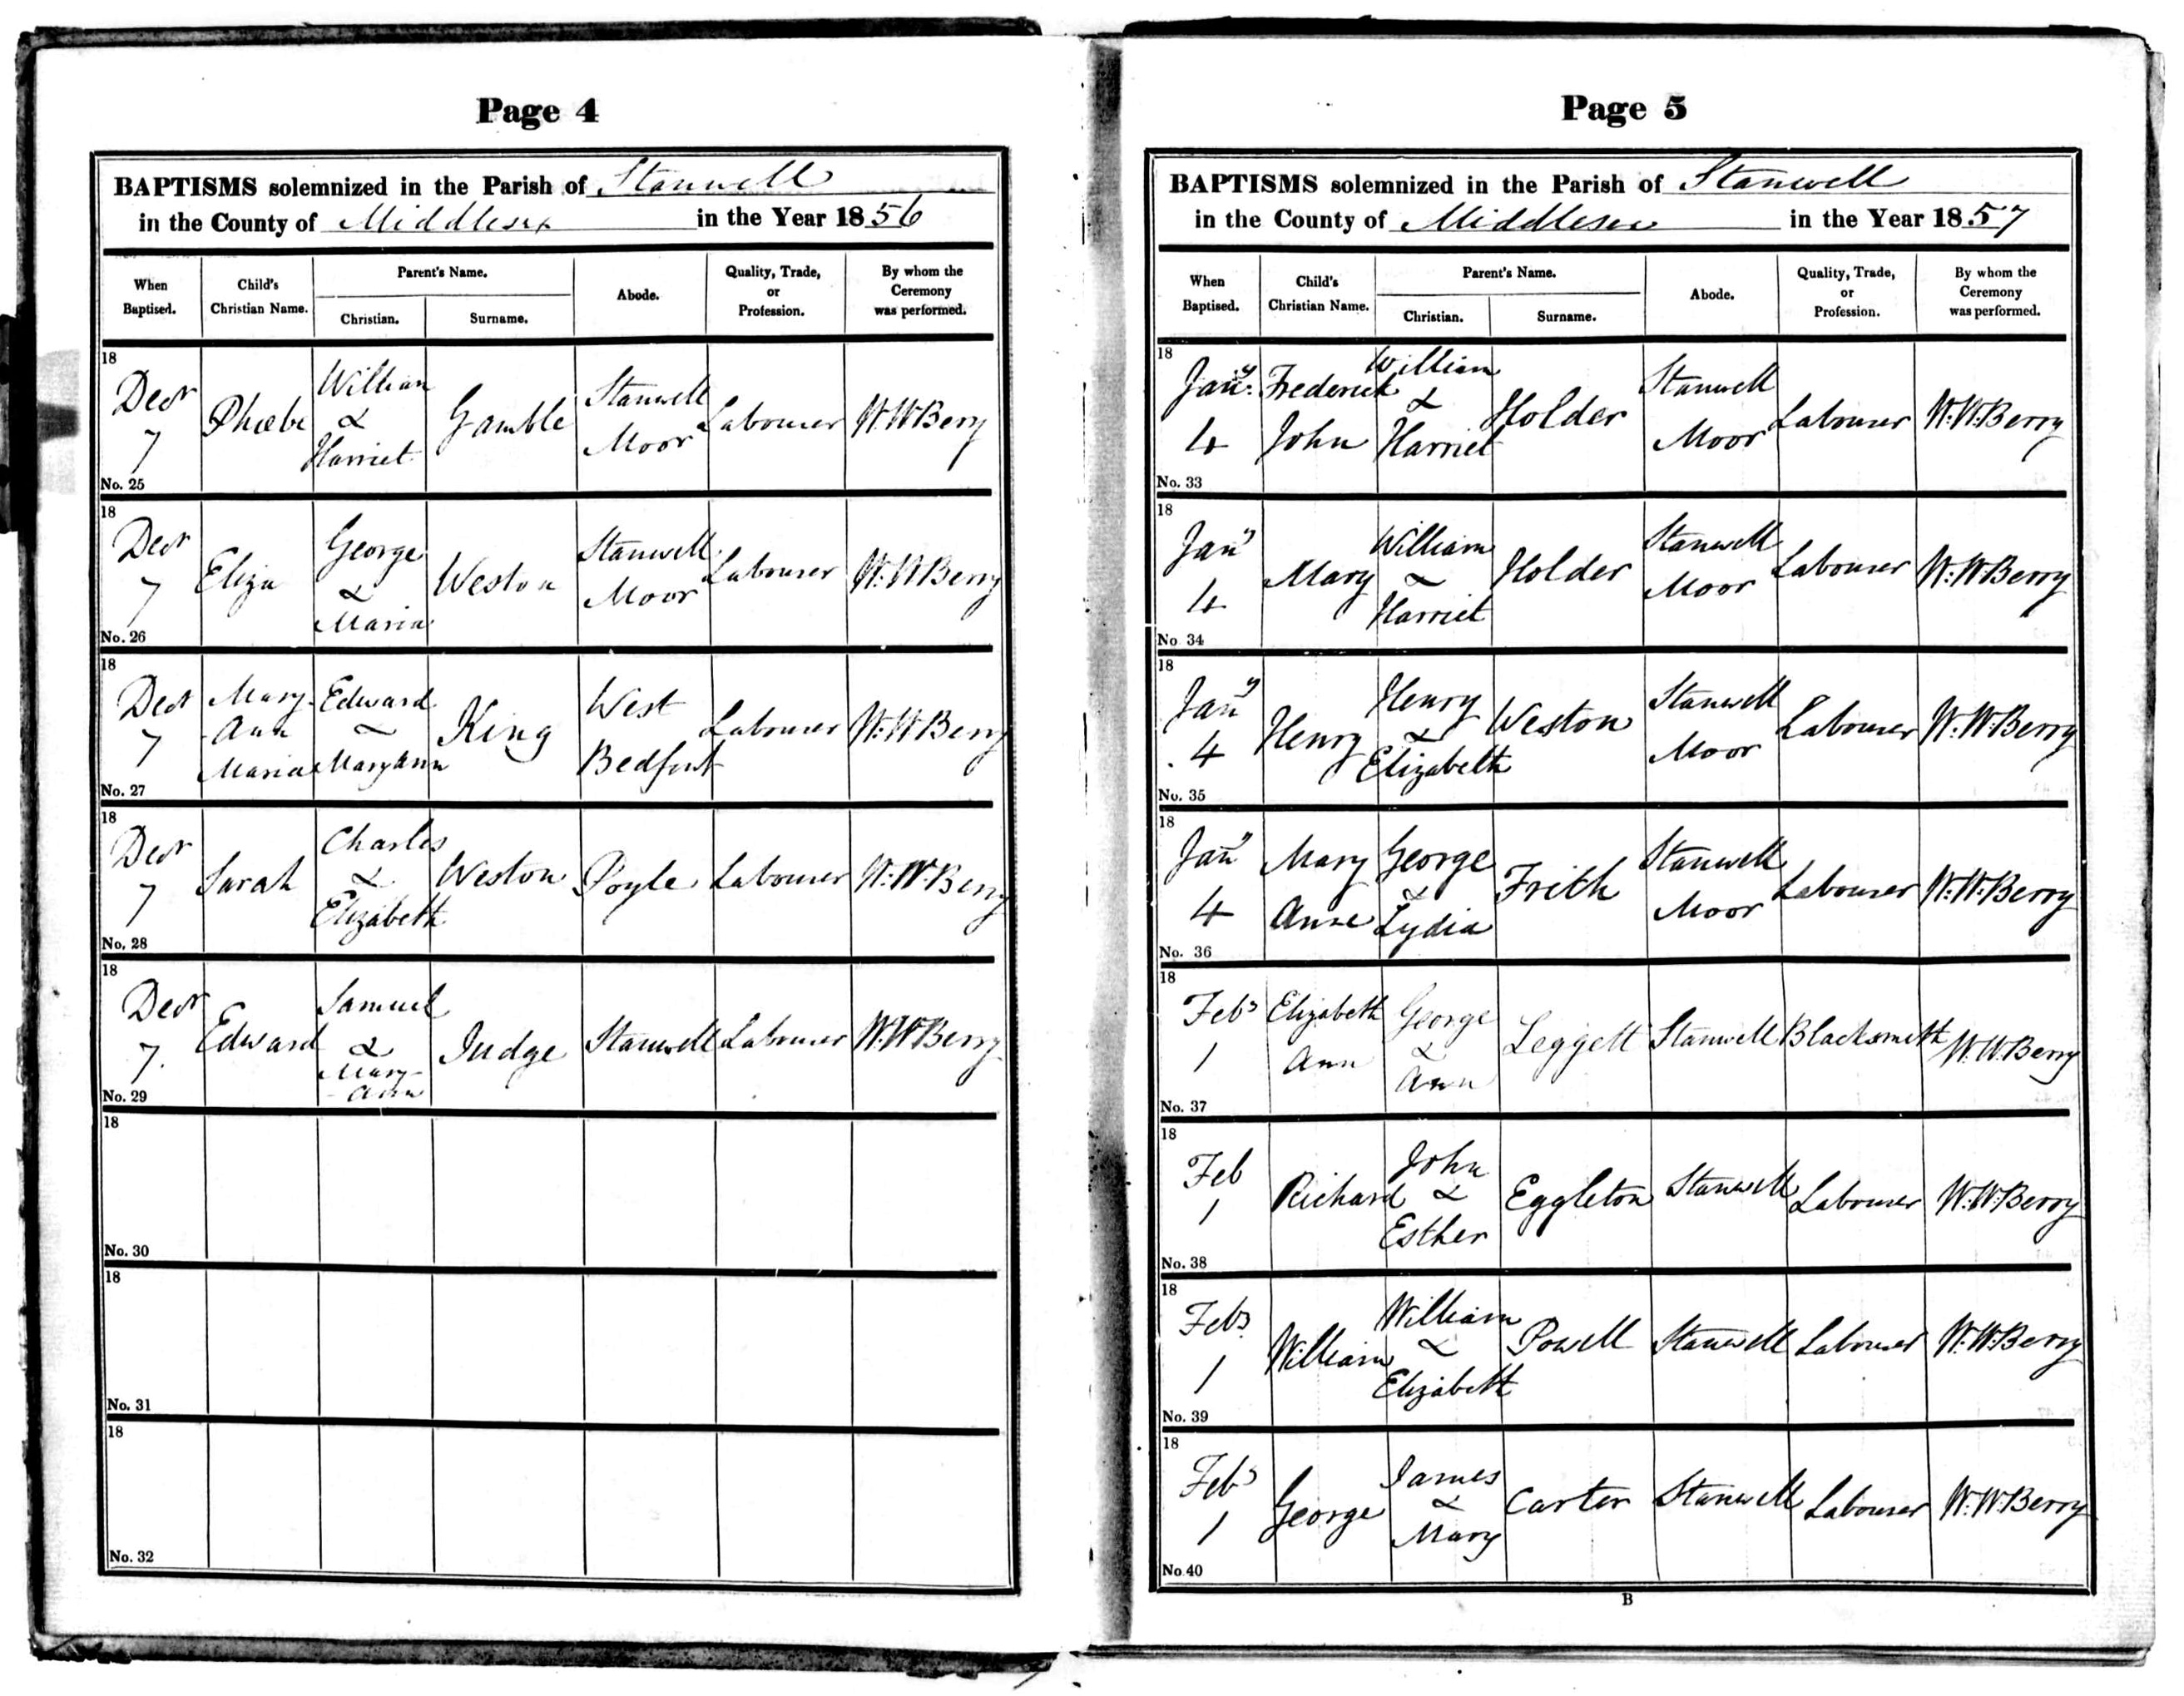 Page 4
BAPTISMS solemnized in the Parish of Stanwell
in the County of Middlesex in the Year 1856
When Baptised. Child's Christian Name. Parent's Name. Christian. Surname. Abode. Quality, Trade, or Profession. By whom the Ceremony was performed.
18 Decr 7 Phœbe William & Harriet Gamble Stanwell Moor Labourer W.W.Berry
No. 25
18 Decr 7 Eliza George & Maria Weston Stanwell Moor Labourer W.W.Berry
No. 26
18 Decr 7 Mary Ann Maria Edward & Mary Ann King West Bedfont Labourer W.W.Berry
No. 27
18 Decr 7 Sarah Charles & Elizabeth Weston Poyle Labourer W.W.Berry
No. 28
18 Decr 7. Edward Samuel & Mary Ann Judge Stanwell Labourer W.W.Berry
No. 29
18
No. 30
18
No. 31
18
No. 32
Page 5
BAPTISMS solemnized in the Parish of Stanwell
in the County of Middlesex in the Year 1857
When Baptised. Child's Christian Name. Parent's Name. Christian. Surname. Abode. Quality, Trade, or Profession. By whom the Ceremony was performed.
18 Jany. 4 Frederick John William & Harriet Holder Stanwell Moor Labourer W.W.Berry
No. 33
18 Jany 4 Mary William & Harriet Holder Stanwell Moor Labourer W.W.Berry
No 34
18 Jany 4 Henry Henry & Elizabeth Weston Stanwell Moor Labourer W.W.Berry
No. 35
18 Jany 4 Mary Anne George & Lydia Frith Stanwell Moor Labourer W.W.Berry
No. 36
18 Feby 1 Elizabeth Ann George & Ann Leggett Stanwell Blacksmith W.W.Berry
No. 37
18 Feb 1 Richard John & Esther Eggleton Stanwell Labourer W.W.Berry
No. 38
18 Feby 1 William William & Elizabeth Powell Stanwell Labourer W.W.Berry
No. 39
18 Feby 1 George James & Mary Carter Stanwell Labourer W.W.Berry
No. 40
B